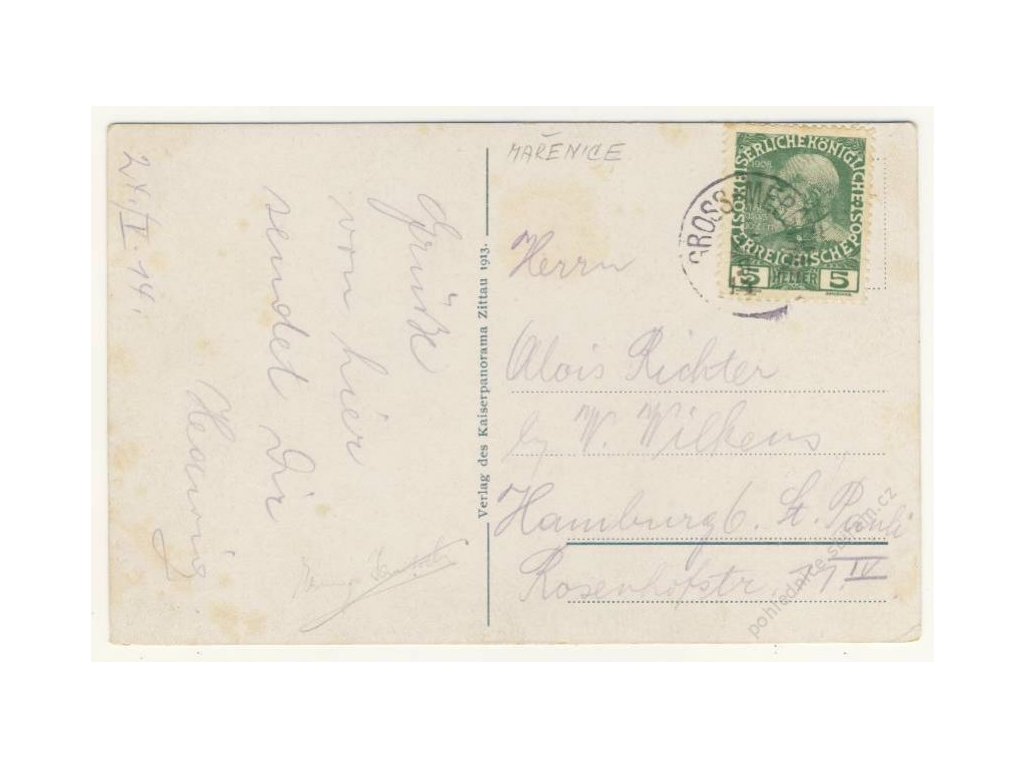 24. I. 14.
Grüße
von hier
sendet Dir
Verlag des Kaiserpanorama Zittau 1913.
MAŘENICE
KAISERLICHE KÖNIGLICHE
ÖSTERREICHISCHE POST
1908
5 HELLER 5
GROSS
Herrn
Alois Richter
by W. Wilkens
Hamburg 6. St. Pauli
Rosenhofstr. 11 IV